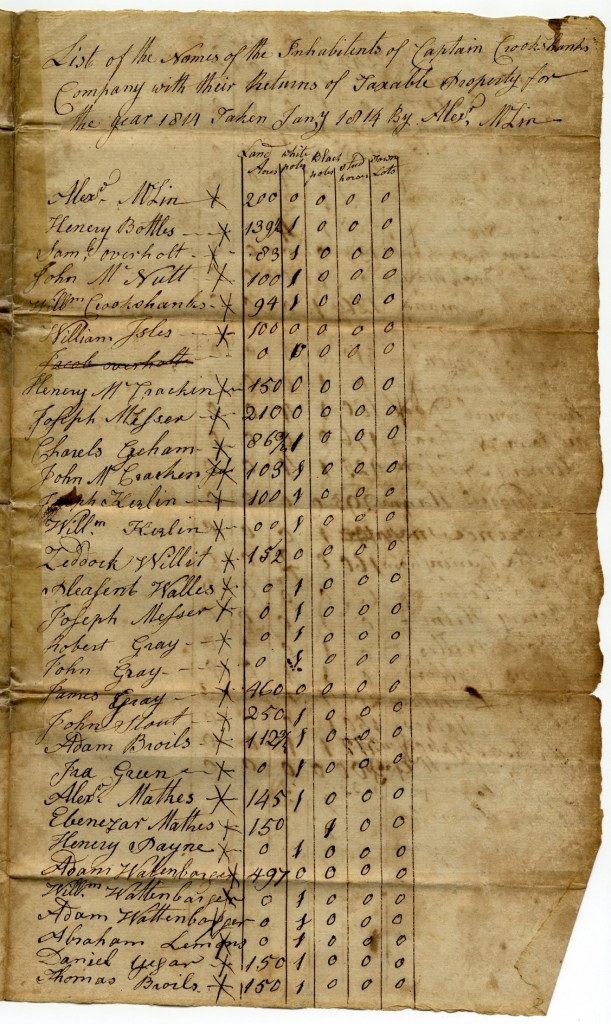 List of the Names of the Inhabitents of Captain Crookshanks
Company with their Returns of Taxable Property for
the year 1814 Taken Jany 1814 By Alexr. McLin
Land Acres | white poles | Black poles | Stud horses | Town Lots
Alexr. McLin X 200 0 0 0 0
Henery Bottles X 139½ 1 0 0 0
Saml. overholt X 83 1 0 0 0
John McNutt X 100 1 0 0 0
Willm Crookshanks X 94 1 0 0 0
William Isles X 100 0 0 0 0
Jacob overholt 0 1 0 0 0
Henery McCrackin X 150 0 0 0 0
Joseph Messer X 210 0 0 0 0
Charels Greham X 1 0 0 0
John McCracken X 103 1 0 0 0
Joseph Kerlin X 100 1 0 0 0
Willm Kerlin X 00 1 0 0 0
Zeddock Willit X 152 0 0 0 0
Pleasent Walles X 0 1 0 0 0
Joseph Messer X 0 1 0 0 0
Robert Gray X 0 1 0 0 0
John Gray X 0 1 0 0 0
James Gray X 460 0 0 0 0
John Stout X 250 1 0 0 0
Adam Broils X 1 0 0 0
Jra Green X 0 1 0 0 0
Alexr. Mathes X 145 1 0 0 0
Ebenezar Mathes X 150 1 0 0
Henery Payne X 0 1 0 0 0
Adam Wattenbarger X 497 0 0 0 0
Willm Wattenbarger X 0 1 0 0 0
Adam Wattenbarger X 0 1 0 0 0
Abraham Lemons 0 1 0 0 0
Daniel Yegar X 150 1 0 0 0
Thomas Broils X 150 1 0 0 0